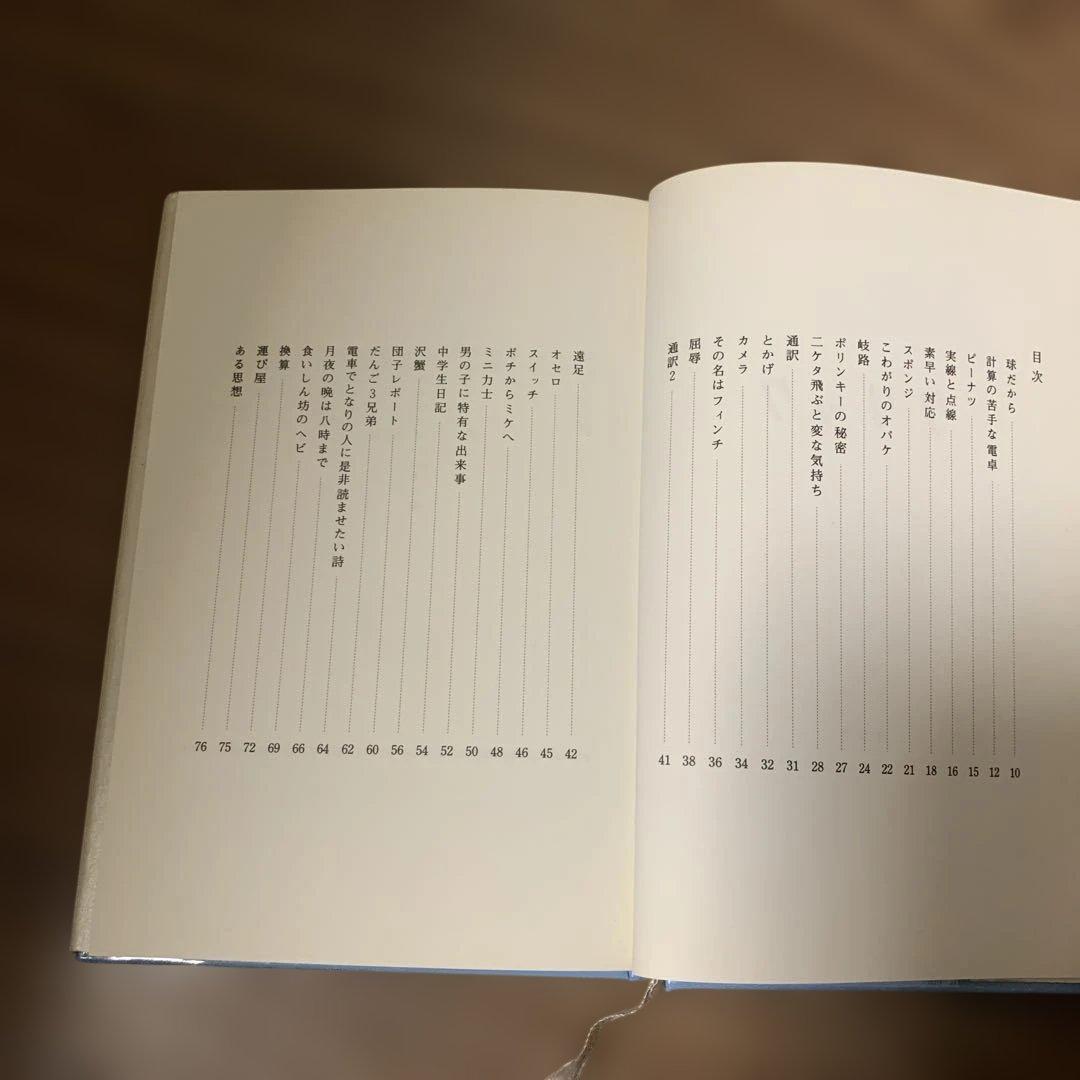 目次
球だから 10
計算の苦手な電卓 12
ピーナツ 15
実線と点線 16
素早い対応 18
スポンジ 21
こわがりのオバケ 22
岐路 24
ポリンキーの秘密 27
二ケタ飛ぶと変な気持ち 28
通訳 31
とかげ 32
カメラ 34
その名はフィンチ 36
屈辱 38
通訳2 41
遠足 42
オセロ 45
スイッチ 46
ポチからミケへ 48
ミニ力士 50
男の子に特有な出来事 52
中学生日記 54
沢蟹 56
団子レポート 60
だんご3兄弟 62
電車でとなりの人に是非読ませたい詩 64
月夜の晩は八時まで 66
食いしん坊のヘビ 69
換算 72
運び屋 75
ある思想 76